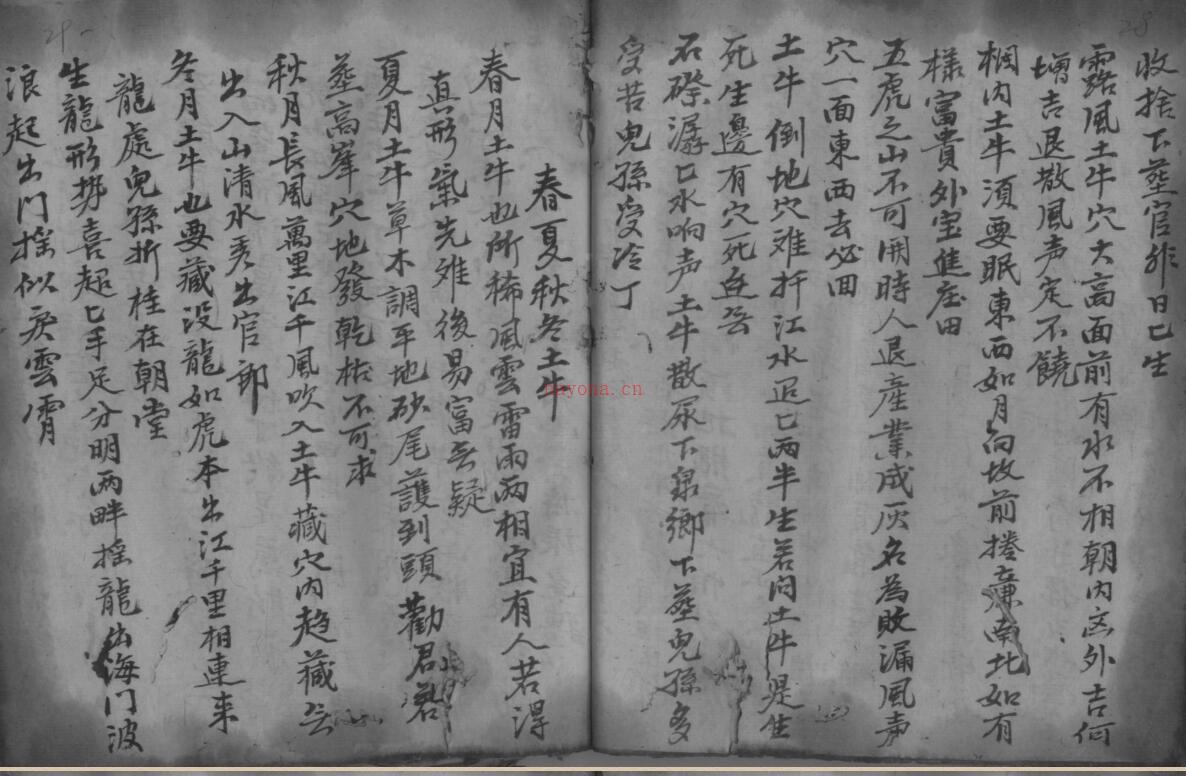 收捨下塟官非日日生
露風土牛穴大高面前有水不相朝内凶外吉何
增吉退散風声定不饒
榈内土牛須要眠東西如月向坟前捲𢊍南北如有
様富貴外宝進庄田
五虎之山不可開時人退産業成灰名為敗漏風声
穴一面東西去必回
土牛倒地穴难扦江水迢匕两半生若问土牛是生
死生邊有穴死邊无
石磜潺匕水响声土牛散尿下泉鄉下塟兒孫多
受苦兒孫受冷丁
春夏秋冬土牛
春月土牛也所稀風雲雷雨两相宜有人若淂
真形氣先难後易富无疑
夏月土牛草木調平地砂尾護到頭勸君若
塟高峯穴地發乾枯不可求
秋月長風萬里江千風吹入土牛藏穴内趋藏
出入山清水秀出官郎
冬月土牛也要藏没龍如虎本出江千里相連来
龍處兒孫折桂在朝堂
生龍形势喜超匕手足分明两畔摇龍出海门波
浪起出门摇似戾雲霄
28
29
nayona.cn